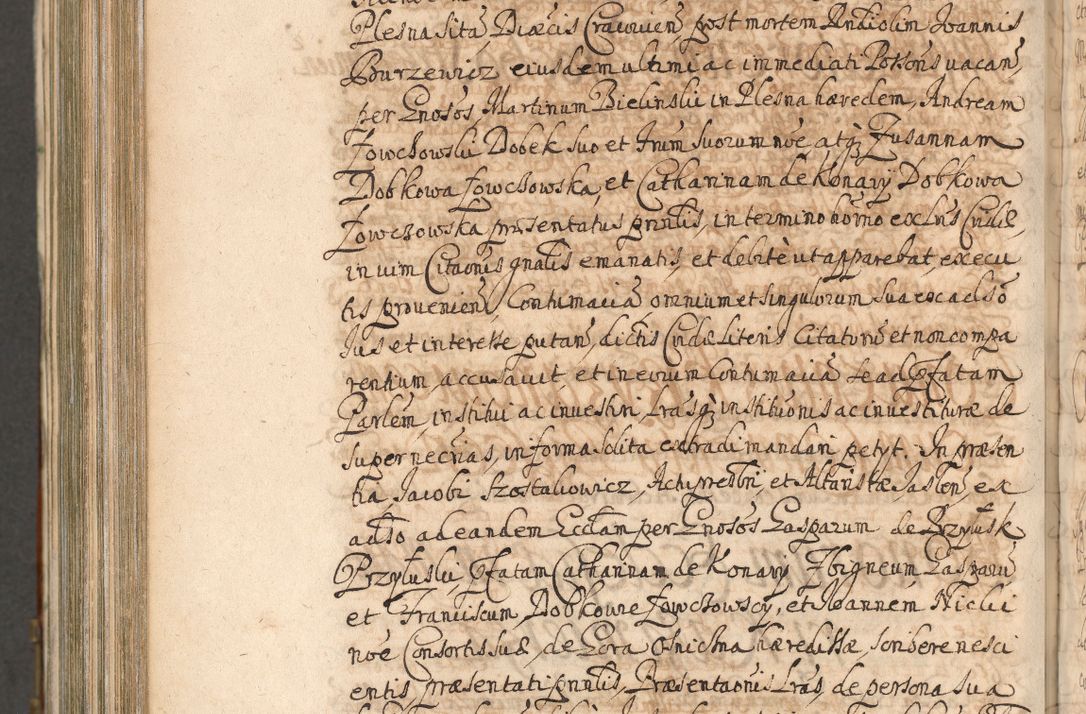 Plesna sita, Diæcis Cracovien, post mortem Andiolim Joannis
Burzewicz eiusdem ultimi ac immediati Possons vacan,
per Gnosos, Martinum Bielinski in Plesna hæredem, Andream
Łowchowski Dobek suo et Frum suorum noe atq; Zusannam
Dobkowa Łowchowska, et Catharinam de Konary Dobkowa
Łowchowska præsentatus prntis, in termino horno ex lris Cridæ,
in vim Citaonis gnalis emanatis, et debitè ut apparebat, execu
tis provenien, Contumacia omnium et singulorum sua
Jus et interesse putan, dictis Cridæ literis Citatorū et non compa
rentium, accusavit, et in eorum Contumacia se ad pfatam
Parlem, institui ac investiri, Lrasq; institutionis ac investituræ de
super necrias, in forma solita extradi mandari petyt. In præsen
tia, Jacobi Szostakowicz, Actu presbri, et Altaristæ Jaslen, ex
ad eandem Ecclam per Gnosos Gasparum de Przyłusk
Przyłuski, pfatam Catharinam de Konary Zbigneum, Gasparū
et Franciscum, Dobkowie Łowchowscy, et Joannem Niclii
noe Consortis suæ, de Gora Osnichna hæredissæ, sonberenesci
entis, præsentati prntis, Præsentaonis Lras, de persona sua